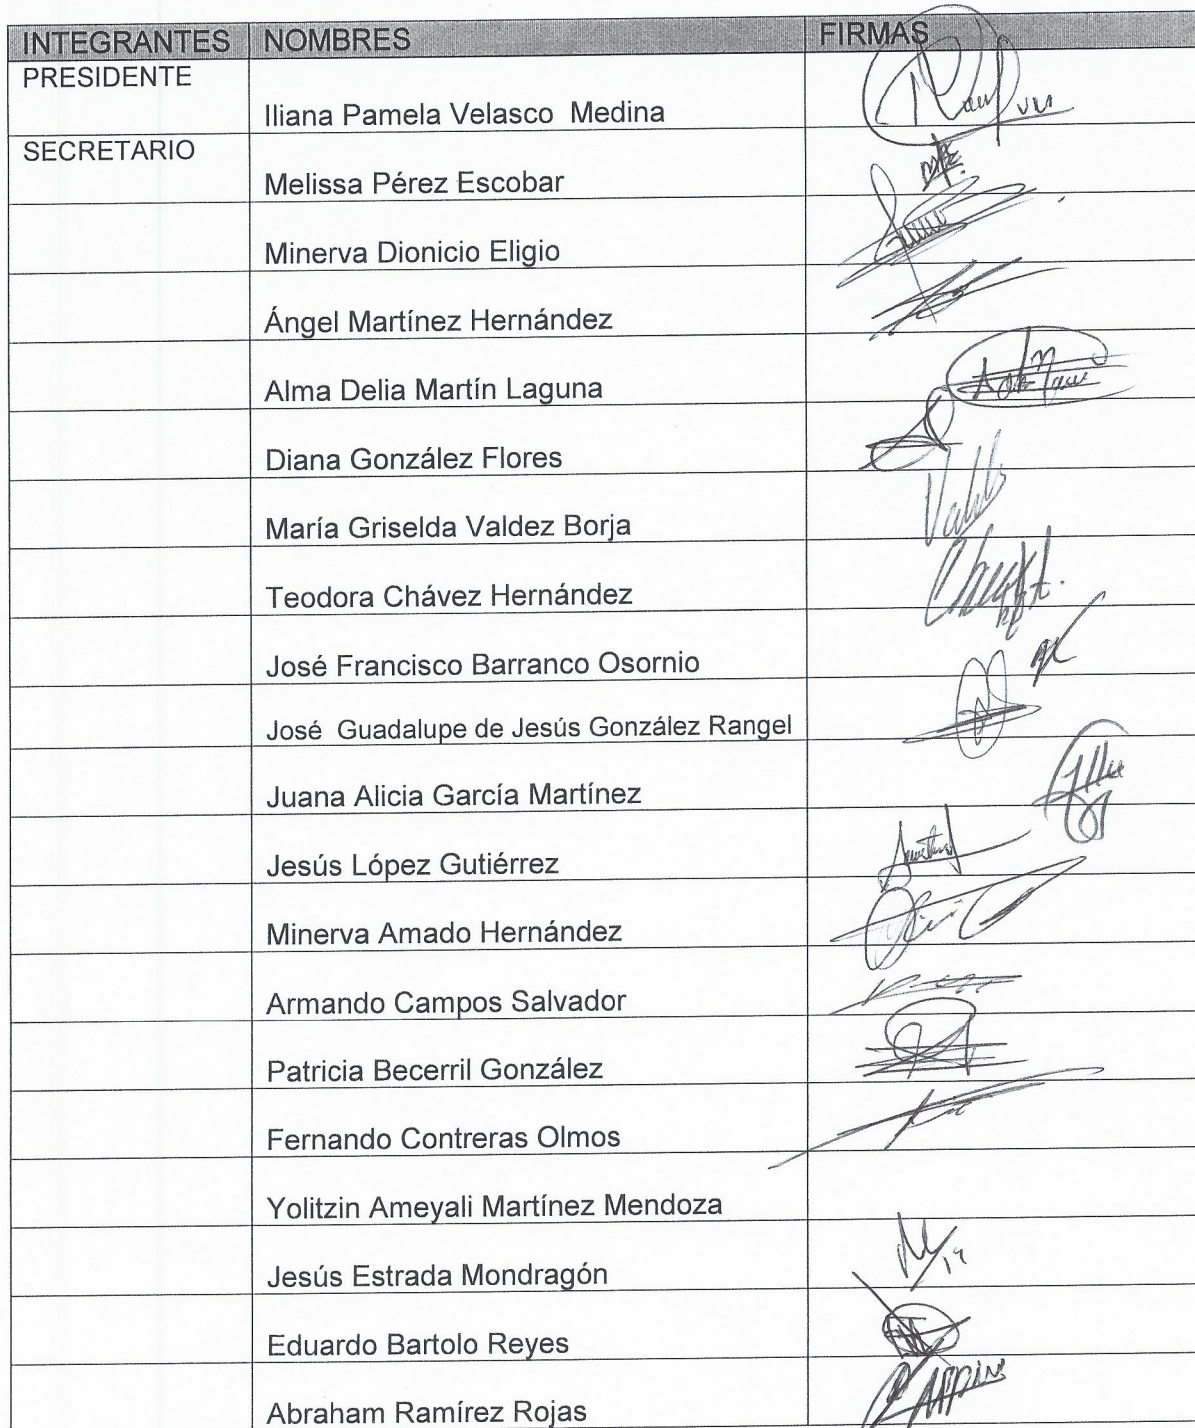 INTEGRANTES NOMBRES FIRMAS
PRESIDENTE
Iliana Pamela Velasco Medina
SECRETARIO
Melissa Pérez Escobar
Minerva Dionicio Eligio
Ángel Martínez Hernández
Alma Delia Martín Laguna
Diana González Flores
María Griselda Valdez Borja
Teodora Chávez Hernández
José Francisco Barranco Osornio
José Guadalupe de Jesús González Rangel
Juana Alicia García Martínez
Jesús López Gutiérrez
Minerva Amado Hernández
Armando Campos Salvador
Patricia Becerril González
Fernando Contreras Olmos
Yolitzin Ameyali Martínez Mendoza
Jesús Estrada Mondragón
Eduardo Bartolo Reyes
Abraham Ramírez Rojas